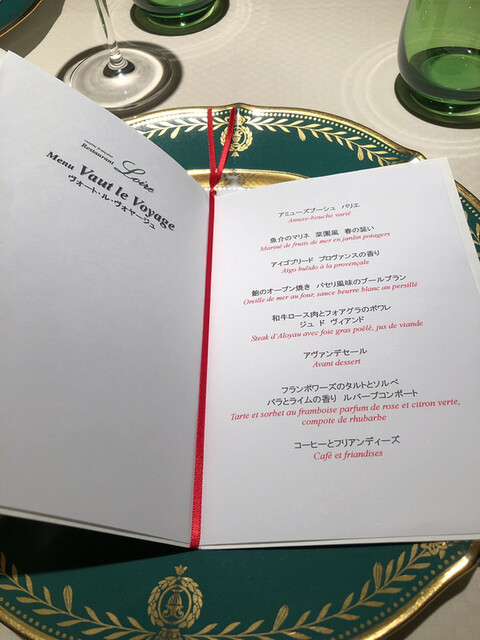 Restaurant Loire
Menu Vaut le Voyage
ヴォート・ル・ヴォヤージュ
アミューズブーシュ バリエ
Amuse-bouche varié
魚介のマリネ 菜園風 春の装い
Mariné de fruits de mer en jardin potagers
アイゴブリード プロヴァンスの香り
Aigo bulido à la provençale
鮑のオーブン焼き パセリ風味のブールブラン
Oreille de mer au four, sauce beurre blanc au persillé
和牛ロース肉とフォアグラのポワレ
ジュ ド ヴィアンド
Steak d'Aloyau avec foie gras poêlé, jus de viande
アヴァンデセール
Avant dessert
フランボワーズのタルトとソルベ
バラとライムの香り ルバーブコンポート
Tarte et sorbet au framboise parfum de rose et citron verte,
compote de rhubarbe
コーヒーとフリアンディーズ
Café et friandises